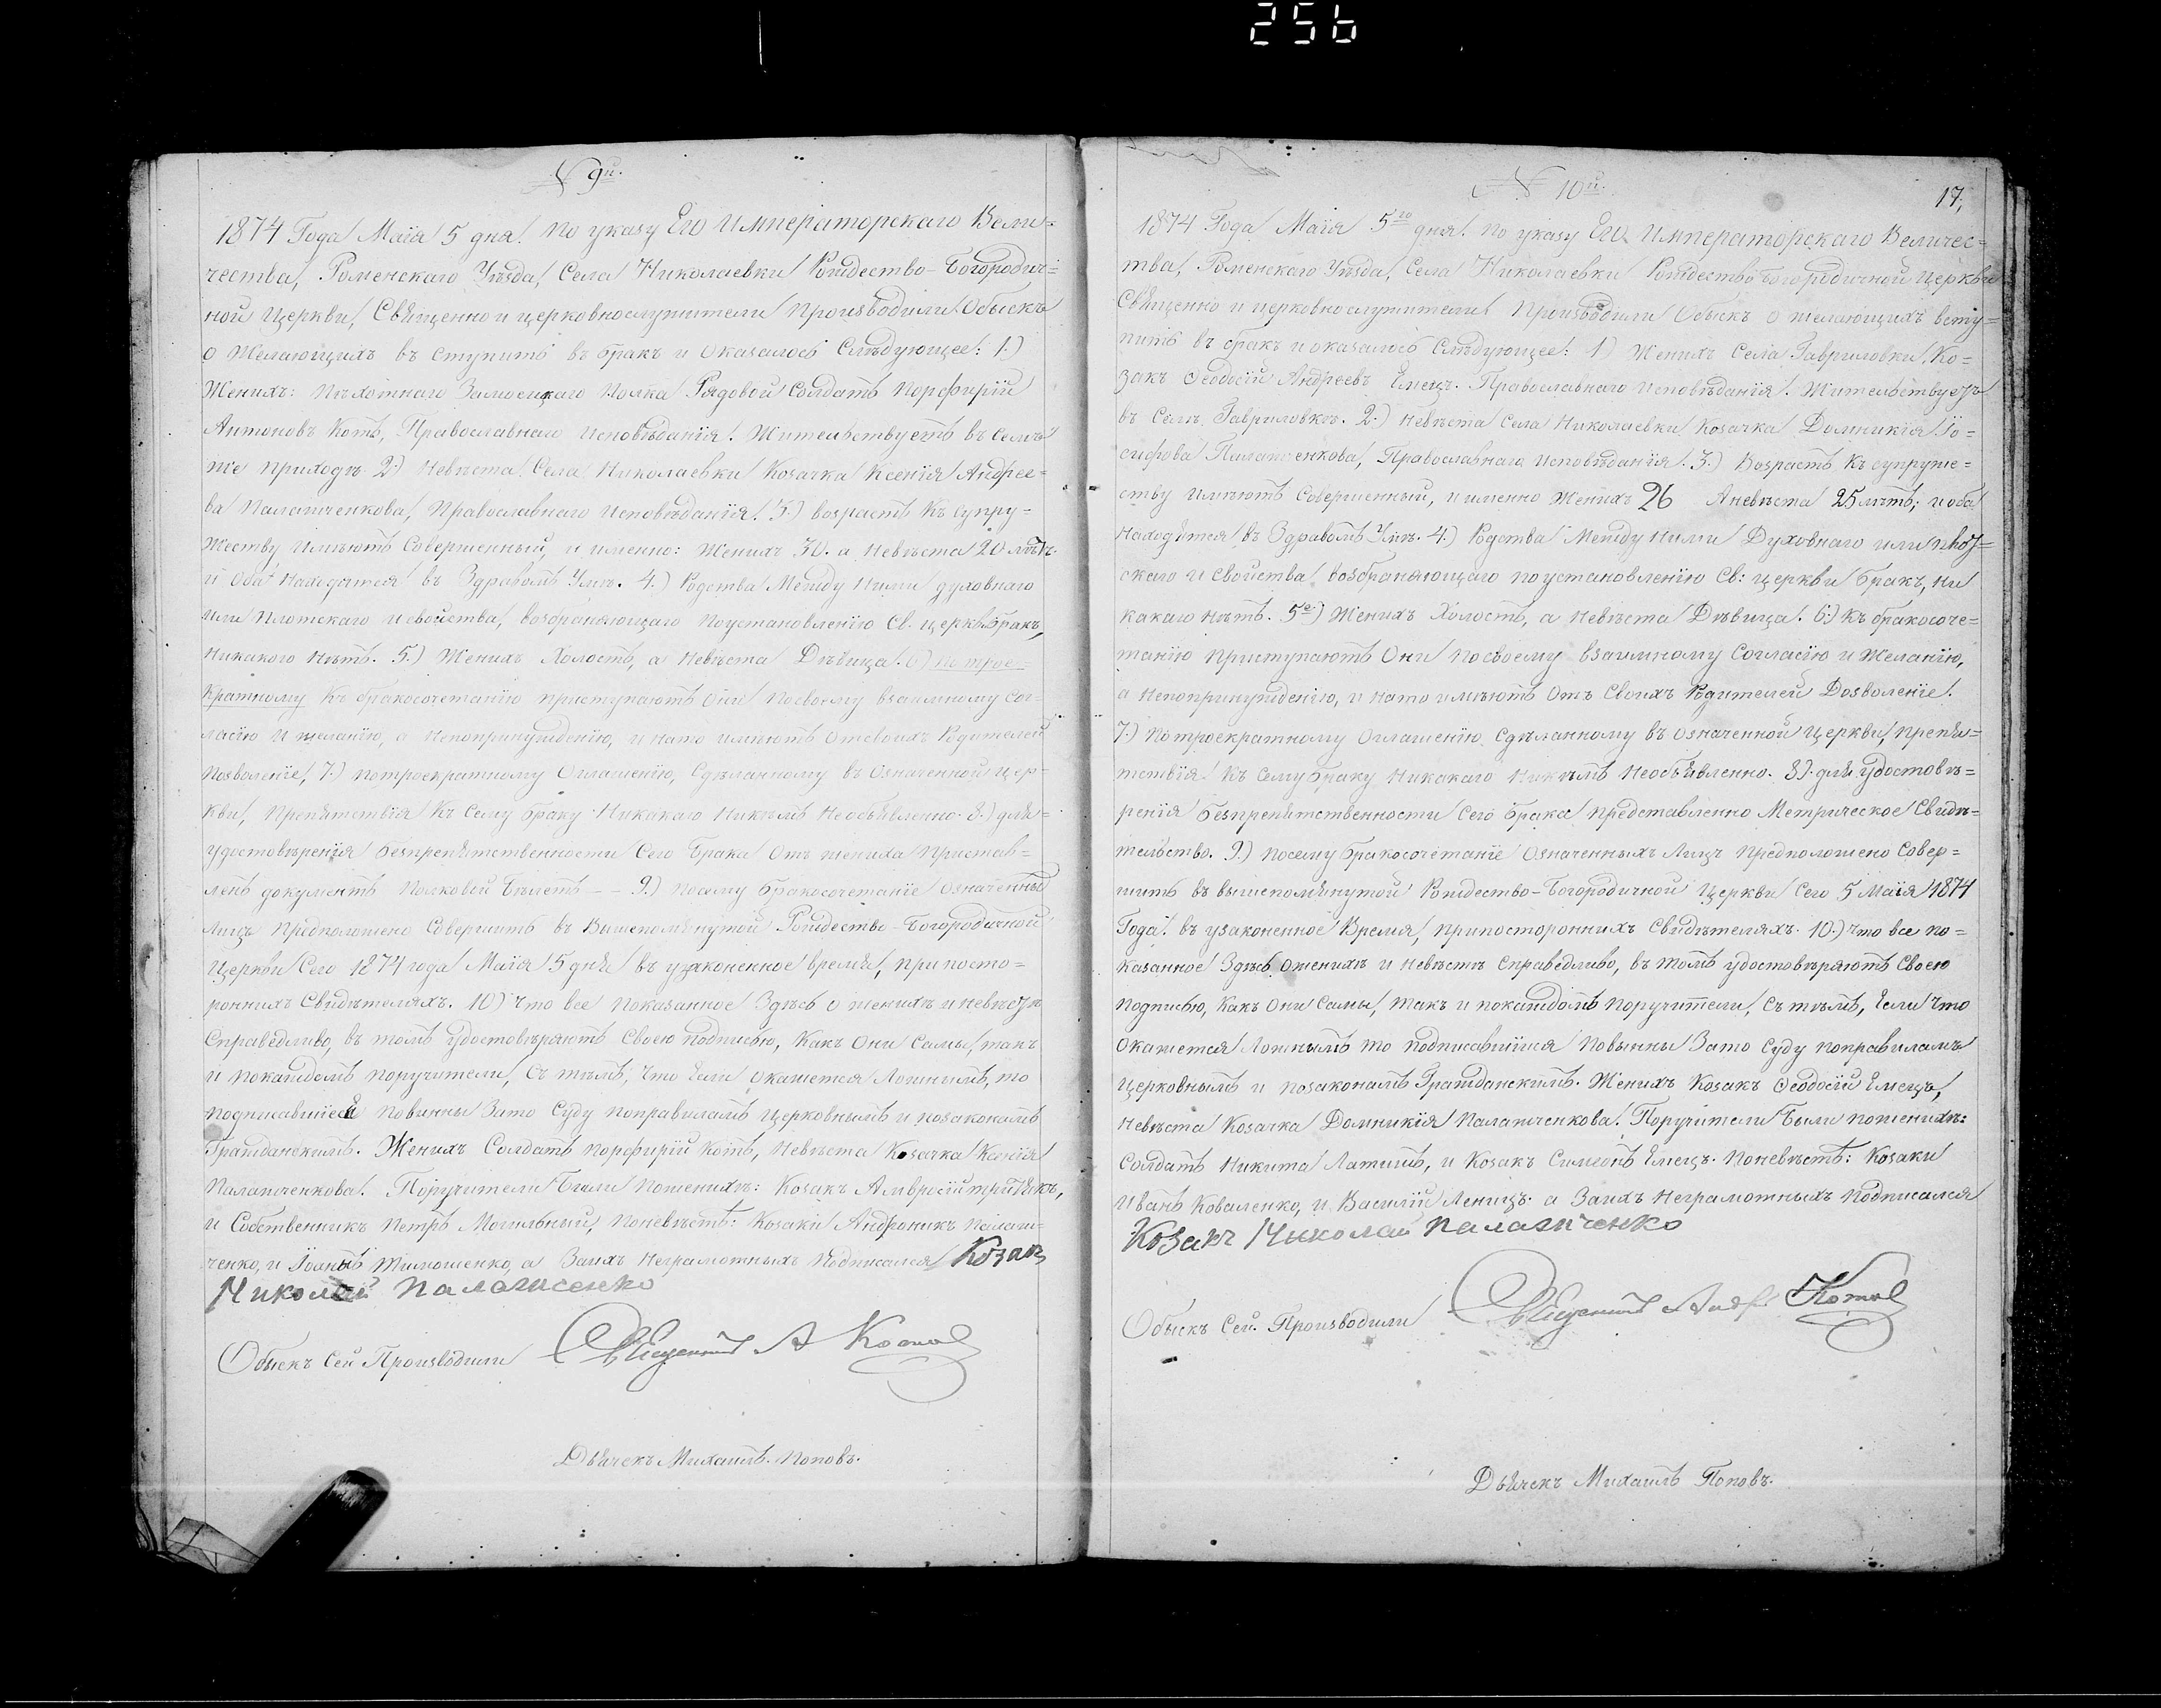 256
N 9й.
1874 Года Маія 5 дня. По указу Его Императорскаго Вели=
чества, Роменскаго Уѣзда, Села Николаевки Рождество-Богородич=
ной Церкви, Священно и церковнослужители производили Обыскъ
о Желающихъ въ ступить въ бракъ и Оказалось Слѣдующее: 1.)
Женихъ: Пѣхотнаго Замосцкаго Полка Рядовой Солдатъ Порфирій
Антоновъ Котъ, Православнаго Исповѣданія. Жительствуетъ въ Семъ
же Приходѣ. 2.) Невѣста Села Николаевки Козачка Ксенія Андрее=
ва Палажченкова, Православнаго Исповѣданія. 3.) возрастъ Къ супру=
жеству Имѣютъ Совершенный, и именно: Женихъ 30. а Невѣста 20 лѣтъ.
и Оба Находятся въ Здравомъ Умѣ. 4.) Родства Между Ними духовнаго
или Плотскаго и свойства, возбраняющаго поустановленію Св. церкв. Бракъ,
Никакого Нѣтъ. 5.) Женихъ Холостъ, а Невѣста Дѣвица. 6.) По трое=
кратному Къ бракосочетанію приступаютъ Они Посвоему взаимному Сог=
ласію И желанію, а Непопринужденію, и Нато имѣютъ Отсвоихъ Родителей
Позволеніе, 7.) потроекратному Оглашенію, Сдѣланному въ Означенной Цер=
кви, Препятствія Къ Сему браку Никакаго Никѣмъ Необъявленно. 8.) для=
удостовѣренія безпрепятственности Сего Брака Отъ жениха Пристав=
ленъ документъ Полковой Билетъ - - 9.) Посему бракосочетаніе Означенны
Лицъ Предположено Совершить въ Вышепомянутой Рождество-Богородичной
Церкви Сего 1874 года Маія 5 дня въ узаконенное время, при посто=
роннихъ Свидѣтеляхъ. 10) Что все показанное Здѣсь о женихѣ и невѣстѣ
Справедливо, въ томъ удостовѣряютъ Своею подписью, Какъ Они Самы, такъ
и покаждомъ поручители, съ тѣмъ, Что Если Окажется Ложнымъ, то
подписавшіеся повинны Зато Суду поправиламъ Церковнымъ и позаконамъ
Гражданскимъ. Женихъ Солдатъ Порфирій Котъ, Невѣста Козачка Ксенія
Палажченкова. Поручители Были Поженихѣ: Козакъ Амвросій
и Собственникъ Петръ Могильный, поневѣстѣ: Козаки Андроникъ Палаж=
ченко, и Іоаннъ Тимошенко, а Заихъ Неграмотныхъ Подписался Козакъ
Николай Палажченко
Обыскъ Сей Производили Священникъ А Котов
Дьячекъ Михаилъ Поповъ.
N 10й.
17,
1874 Года Маія 5го дня. По указу Его Императорскаго Величес=
тва, Роменскаго Уѣзда, Села Николаевки Рождество Богородичной Церкви
Священно и церковнослужители Производили Обыскъ о желающихъ всту=
пить въ бракъ и оказалось Слѣдующее: 1) Женихъ Села Гавриловки, Ко=
закъ Ѳеодосій Андреевъ Емецъ. Православнаго Исповѣданія. Жительствуетъ
въ Селѣ Гавриловкѣ. 2.) Невѣста Села Николаевки Козачка Домникія Іо=
сифова Палажченкова, Православнаго Исповѣданія. 3.) Возрастъ Къ супруже=
ству Имѣютъ Совершенный, и именно Женихъ 26 А невѣста 25 лѣтъ; и оба
Находятся въ Здравомъ Умѣ. 4.) Родства Между Ними Духовнаго или плот=
скаго и свойства возбраняющаго поустановленію Св: церкви бракъ, ни
какаго Нѣтъ. 5е) Женихъ Холостъ, а Невѣста Дѣвица. 6.) Къ бракосоче=
танію Приступаютъ Они посвоему взаимному Согласію и Желанію,
а Непопринужденію, и Нато имѣютъ Отъ Своихъ Родителей Дозволеніе.
7.) Потроекратному Оглашенію Сдѣланному въ Означенной Церкви, Препя=
тствія Къ Сему браку Никакаго Никѣмъ Необъявленно. 8). для удостовѣ=
ренія безпрепятственности Сего брака представленно Метрическое Свидѣ=
тельство. 9.) посему бракосочетаніе Означенныхъ Лицъ Предположено Совер=
шить въ вышепомянутой Рождество-Богородичной Церкви Сего 5 Маія 1874
Года. въ узаконенное Время, припостороннихъ Свидѣтеляхъ. 10.) что все по=
казанное Здѣсь Оженихѣ и Невѣстѣ Справедливо, въ томъ удостовѣряютъ Своею
подписью, Какъ Они Самы, такъ и покаждомъ Поручители, Съ тѣмъ, Если Что
Окажется Ложнымъ то подписавшіися повинны Зато Суду поправиламъ
Церковнымъ и позаконамъ Гражданскимъ. Женихъ Козакъ Ѳеодосій Емецъ,
Невѣста Козачка Домникія Палажченкова. Поручители Были поженихѣ:
Солдатъ Никита Латишъ, и Козакъ Симеонъ Емецъ. Поневѣстѣ: Козаки
Иванъ Коваленко, и Василій Леницъ. а Заихъ Неграмотныхъ Подписался
Козакъ Николай Палажченко
Обыскъ Сей Производили Священникъ Андр. Котов
Дьячекъ Михаилъ Поповъ.